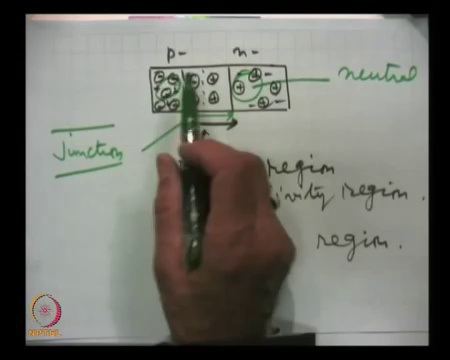 p- n-
neutral
Junction
region
ivity region.
region.
NPTEL